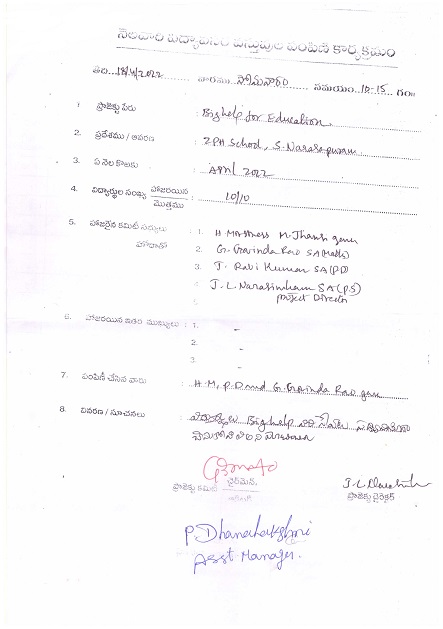 నెలవారి విద్యావసర వస్తువుల పంపిణి కార్యక్రమం
తేది. 18/4/2022 వారము సోమవారం సమయం. 10-15 గం॥
1. ప్రాజెక్టు పేరు : Bighelp for Education
2. ప్రదేశము / ఆవరణ : ZPH School, S. Narasapuram
3. ఏ నెల కొఱకు : April 2022
4. విద్యార్థుల సంఖ్య హాజరయిన / మొత్తము : 10/10
5. హాజరైన కమిటి సభ్యులు : 1. H. Mastress M. Jhansh garu
హోదాతో 2. G. Govinda Rao SA(Maths)
3. T. Ravi Kumar SA(PD)
4. J. L. Narasimham SA(P.S)
Project Director
5.
6. హాజరయిన ఇతర ముఖ్యులు : 1. -
2. -
3. -
7. పంపిణీ చేసిన వారు : H.M, P.D and G. Govinda Rao garu
8. వివరణ / సూచనలు : Bighelp వారి సేవలు
ప్రాజెక్టు కమిటి ఛైర్మెన్.
J. L. Narasimh
ప్రాజెక్టు డైరెక్టర్
P. Dhanalakshmi
Asst Manager.